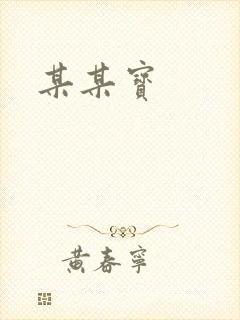 某某寶
黃春寧